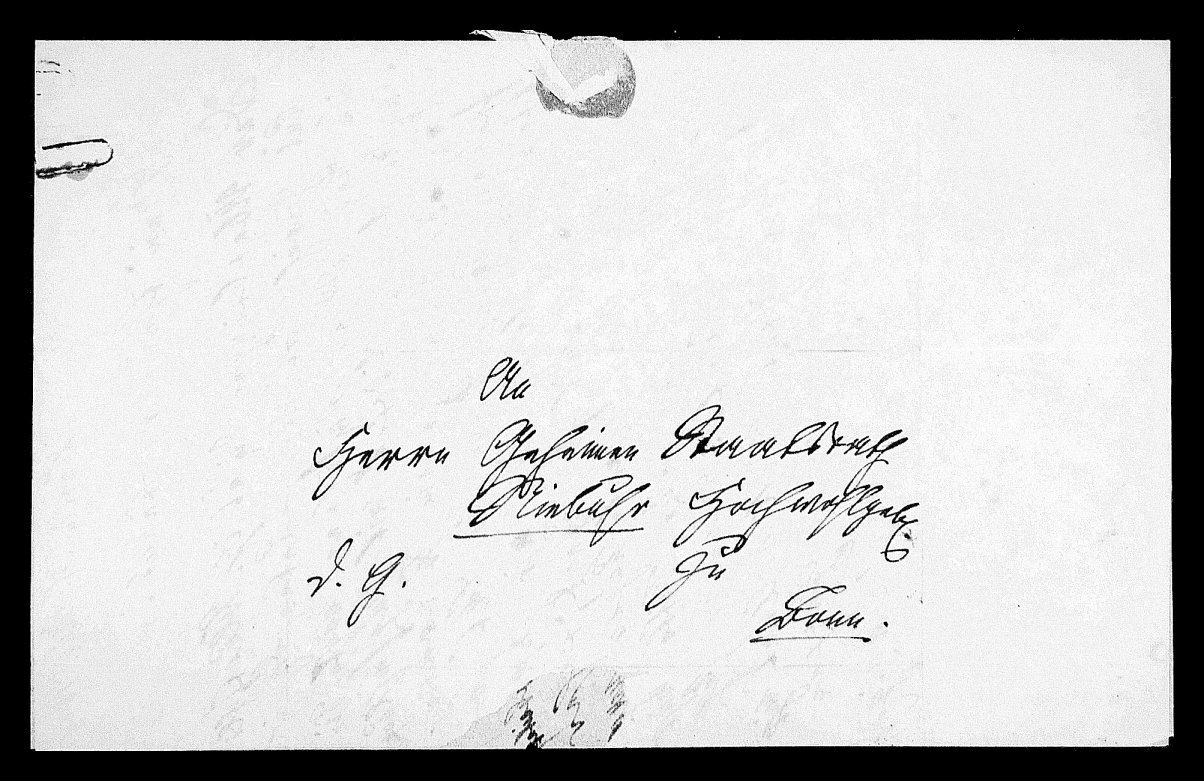 An
Herrn Geheimen Staatsrath
Niebuhr Hochwohlgeb.
d. G. zu
Bonn.